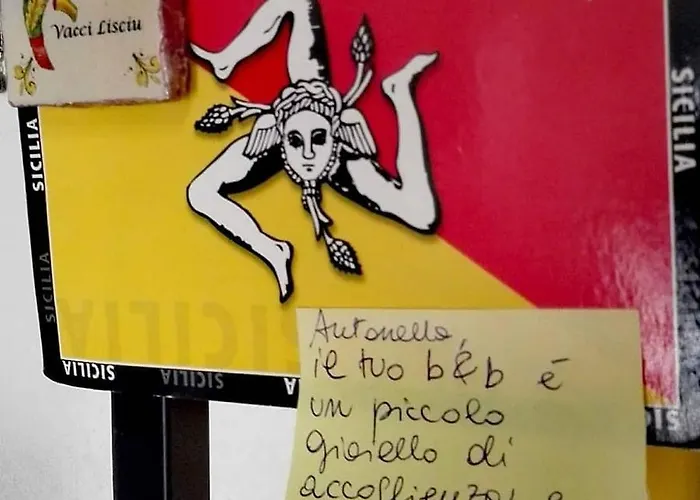 Vacci Lisciu
SICILIA
SICILIA
SICILIA
SICILIA
SICILIA
SICILIA
Antonella,
il tuo b&b è
un piccolo
gioiello di
accoglienza, e